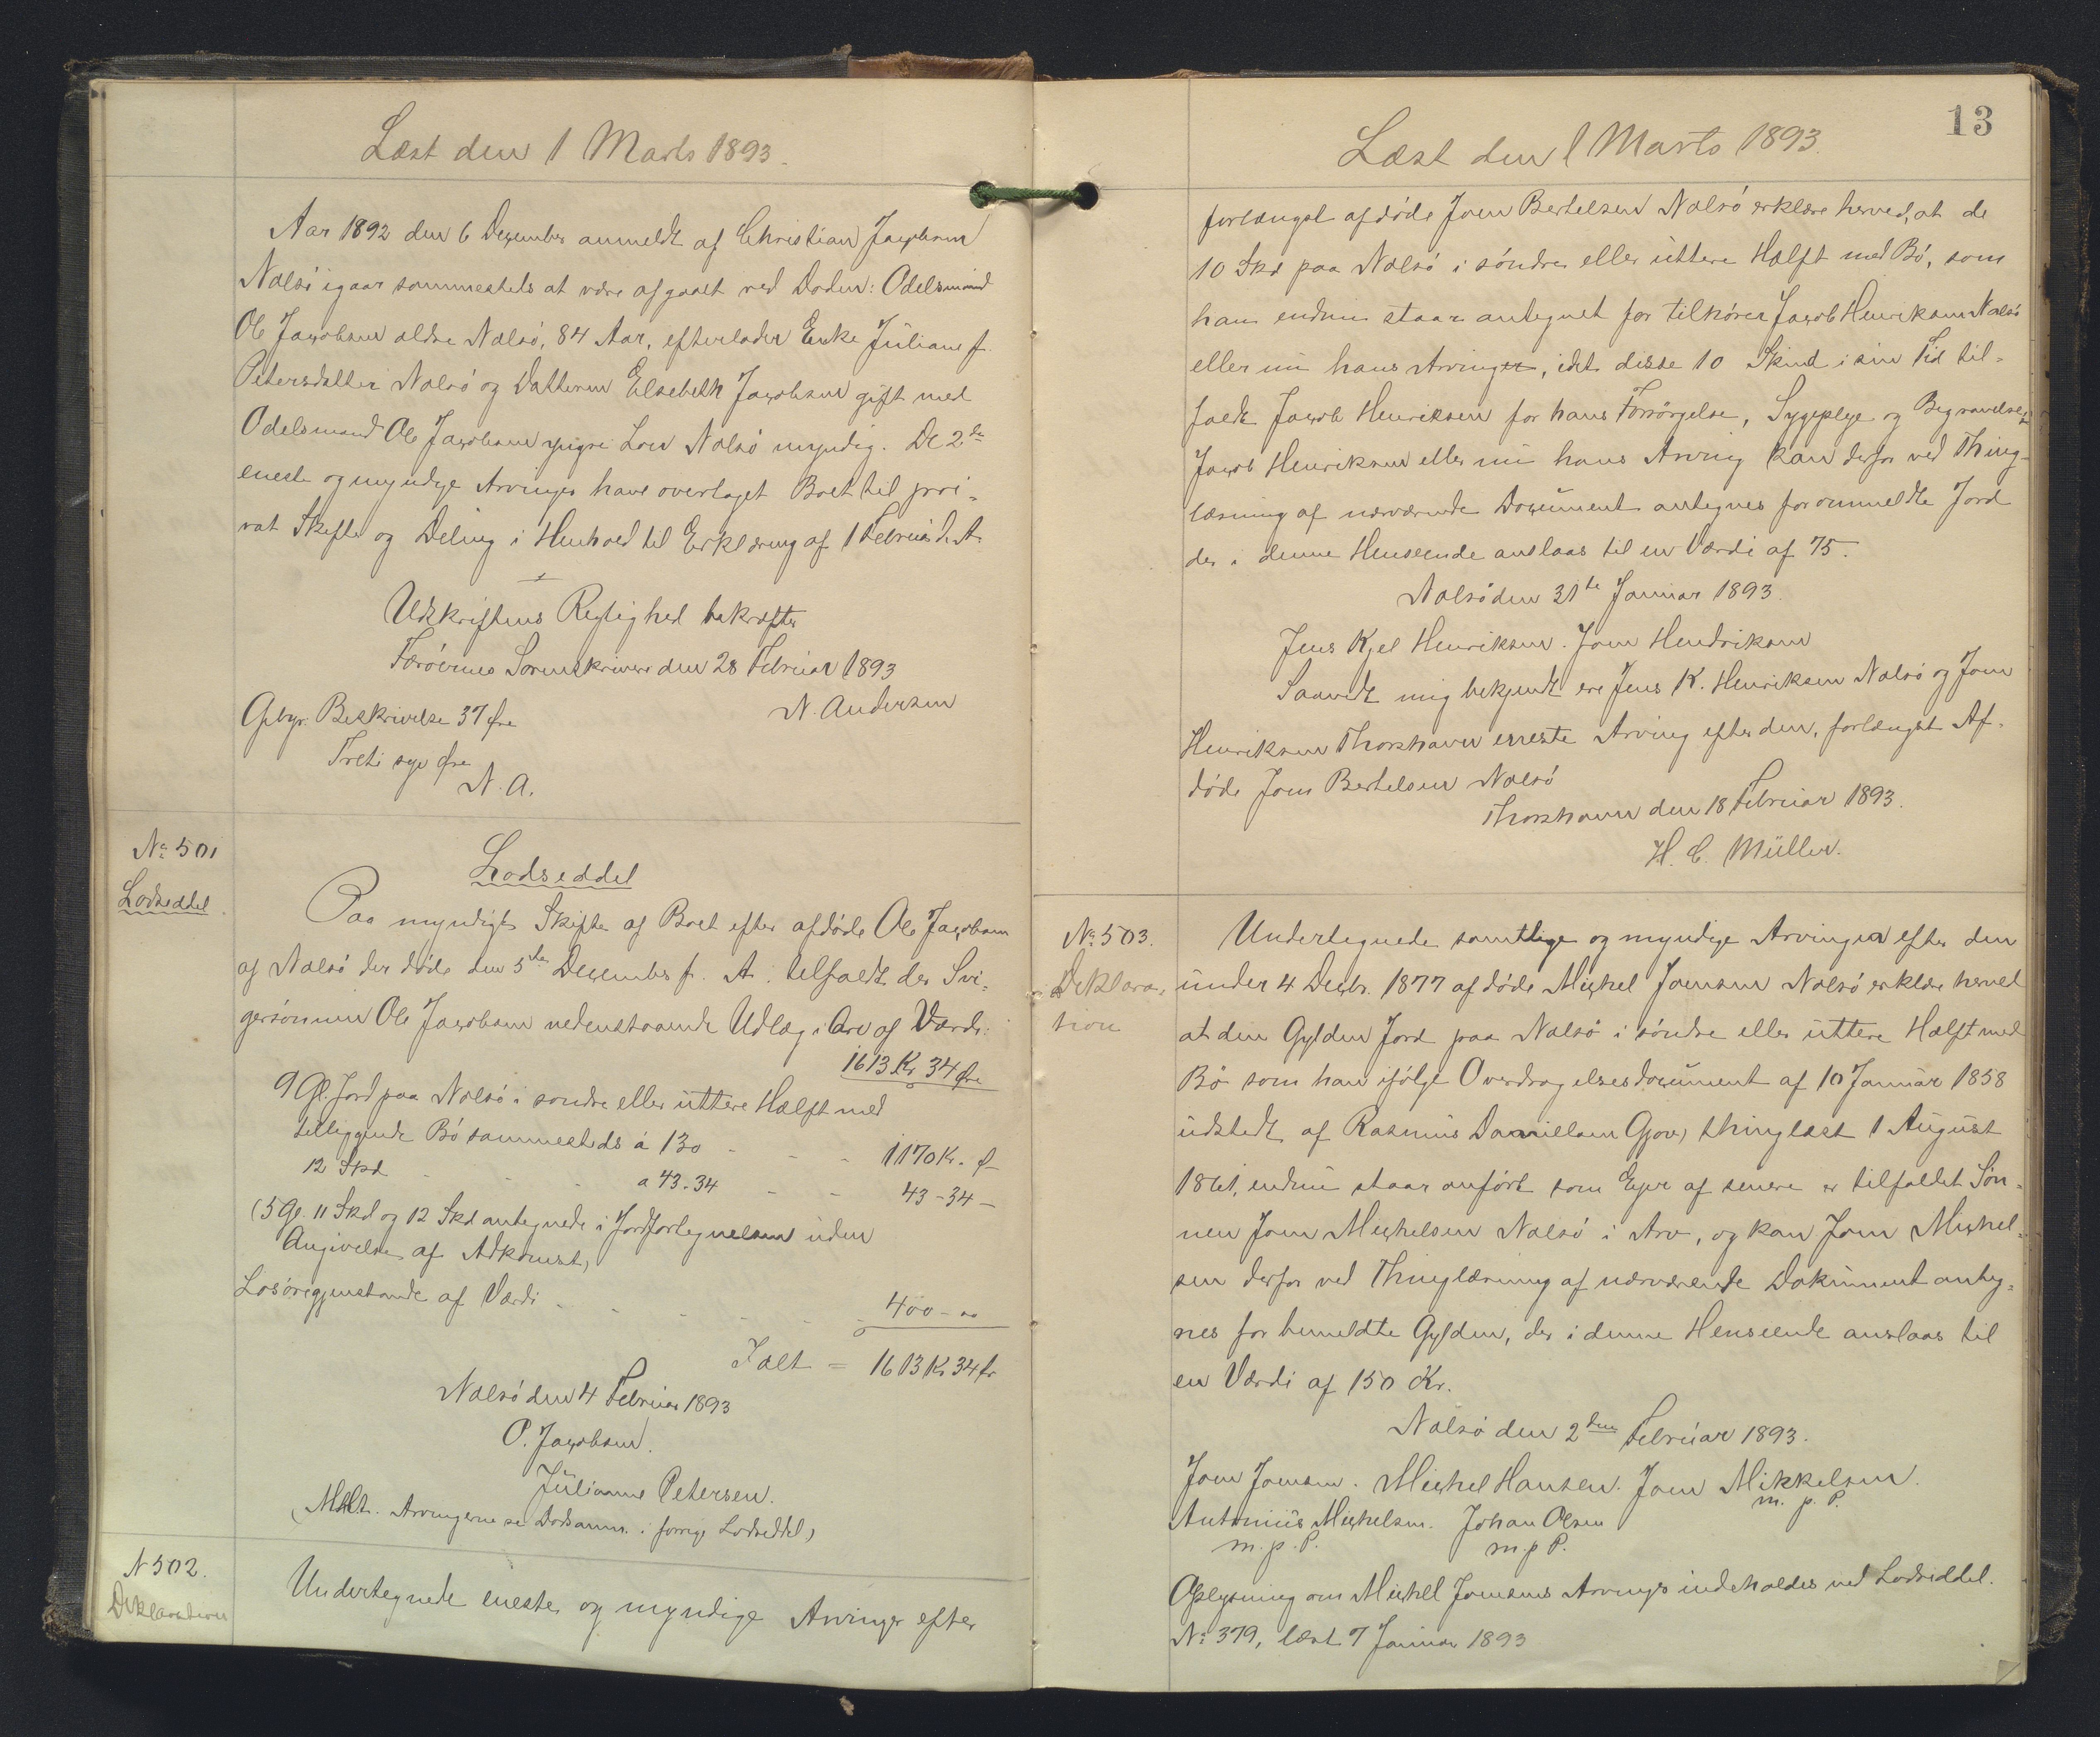 Læst den 1 Marts 1893.
Aar 1892 den 6 Dezember anmeldt af Christian Jacobsen
Nolsö igaar sammesteds at være afgaaet ved Doden: Odelsmand
Ole Jacobsen ældre Nolsö, 84 Aar, efterlader Enke Juliane f.
Petersdatter Nolsö og Datteren Elsebeth Jacobsen gift med
Odelsmand Ole Jacobsen yngre Nolsö myndig. De 2de
eneste og myndige Arvinger have overtaget Boet til pri-
vat Skifte og Deling i Henhold til Erklæring af 1 Februar d. A.
Udskriftens Rigtighed bekræfter
Færöernes Sorenskriveri den 28 Februar 1893
N. Andersen
Gebyr. Beskrivelse 37 Øre
Treti syv Øre
N. A.
No 501
Lodseddel
Lodseddel
Paa myndigt Skifte af Boet efter afdöde Ole Jacobsen
af Nolsö der döde den 5te Decembr f. A. tilfaldt der Svi-
gersönnen Ole Jacobsen nedenstaaende Udlæg i Arv af Værdi:
1613 Kr 34 Øre
9 Gl. Jord paa Nolsö i söndre eller üttere Halft med
tilliggende Bö sammesteds á 130 - - - 1170 Kr. Ø
12 Skd - - - a 43.34 - - 43-34-
(5 Gl. 11 Skd og 12 Skd antegnede i Jordfortegnelsen uden
Angivelse af Adkomst)
Lösöregjenstande af Værdi - - - - - 400-00
Ialt = 1613 Kr 34 Ør
Nolsö den 4 Februar 1893
O. Jacobsen.
Júlianne Petersen.
(Mdlt. Arvingerne se Dödsanm. i forrige Lodseddel)
N 502.
Deklaration
Undertegnede eneste og myndige Arvinger efter
13
Læst den 1 Marts 1893.
forlængst afdöde Joen Bertelsen Nolsö erklære herved, at de
10 Skd paa Nolsö i söndre eller üttere Halft med Bö, som
han endnu staar antegnet for tilhörer Jacob Henriksen Nolsö
eller nu hans Arvinger, idet disse 10 Skind i sin Tid til-
faldt Jacob Henriksen for hans Forsörgelse, Sygepleje og Begravelse,
Jacob Henriksen eller nu hans Arving kan derfor ved Thing-
læsning af nærværende Document antegnes for ommeldte Jord
der i denne Henseende anslaas til en Værdi af 75.
Nolsö den 31te Januar 1893.
Jens Kjel Henriksen. Joen Hendriksen
Saavidt mig bekjendt ere Jens K. Henriksen Nolsö og Joen
Henriksen Thorshavn eneste Arving efter den, forlængst Af-
döde Joen Bertelsen Nolsö
Thorshavn den 18 Februar 1893.
H. C. Müller.
No 503.
Deklara-
tion
Undertegnede samtlige og myndige Arvinger efter den
under 4 Decbr. 1877 afdöde Michel Joensen Nolsö erklære herved
at den Gylden Jord paa Nolsö i söndre eller üttere Halft med
Bö som han ifölge Overdragelsesdocument af 10 Januar 1858
udstedt af Rasmus Danielsen Gjov, thinglæst 1 August
1861, endnu staar anfört som Ejer af senere er tilfaldet Søn-
nen Joen Michelsen Nolsö i Arv, og kan Joen Michel-
sen derfor ved Thinglæsning af nærværende Dokument anteg-
nes for bemeldte Gylden, der i denne Henseende anslaas til
en Værdi af 150 Kr.
Nolsö den 2den Februar 1893.
Joen Joensen. Michel Hansen. Joen Mikkelsen.
m. p. P.
Antonius Michelsen. Johan Olsen
m. p. P. m. p P.
Oplysning om Michel Joensens Arvinger indeholdes ved Lodseddel.
No 379, læst 7 Januar 1893